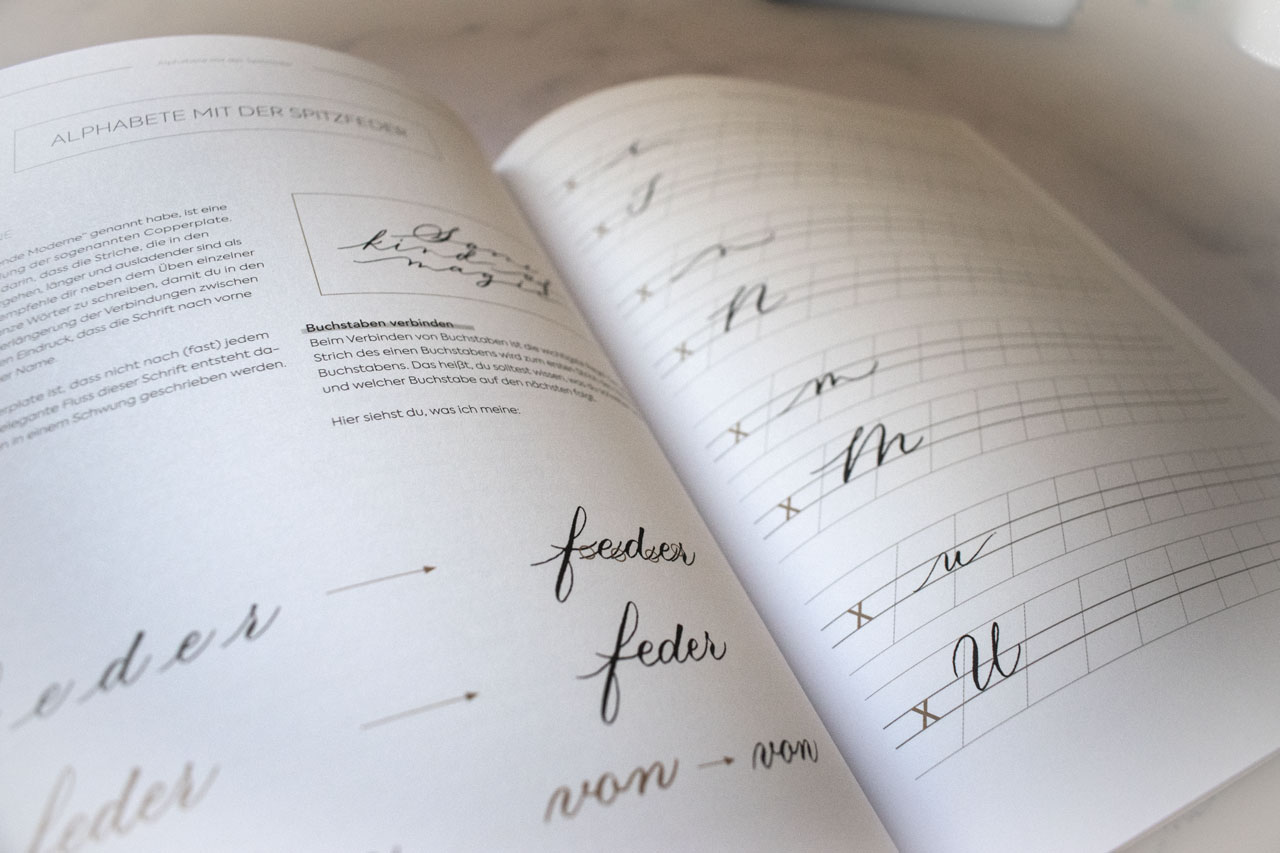 ALPHABETE MIT DER SPITZFEDER
nde Moderne" genannt habe, ist eine
lung der sogenannten Copperplate.
darin, dass die Striche, die in den
gehen, länger und ausladender sind als
empfehle dir neben dem Üben einzelner
nze Wörter zu schreiben, damit du in den
erlängerung der Verbindungen zwischen
en Eindruck, dass die Schrift nach vorne
er Name.
erplate ist, dass nicht nach (fast) jedem
elegante Fluss dieser Schrift entsteht da-
n in einem Schwung geschrieben werden.
kind of
magic
Buchstaben verbinden
Beim Verbinden von Buchstaben ist die wichtigste
Strich des einen Buchstabens wird zum ersten Strich
Buchstabens. Das heißt, du solltest wissen, was
und welcher Buchstabe auf den nächsten folgt.
Hier siehst du, was ich meine:
e d e r
feder
feder
feder
von → von
x
x
x
x n
x m
x M
x u
x U